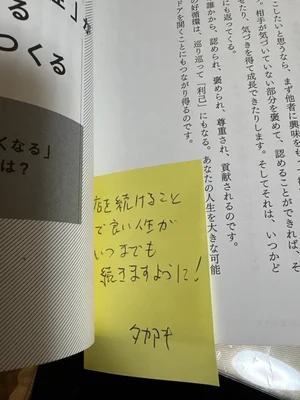 る
つくる
くなる」
は？
したいと思うなら、まず他者に興味をも
相手が気づいていない部分を褒めて、認めることができれば、そ
せたり、気づきを得て成長できたりします。そしてそれは、いつかど
にも返ってくる。
誰かから、認められ、褒められ、尊重され、貢献されるのです。
の好循環は、巡り巡って「利己」にもなる。あなたの人生を大きな可能
ドアを開くことにもつながり得るのです。
店を続けること
で良い人生が
いつまでも
続きますように！
タカアキ